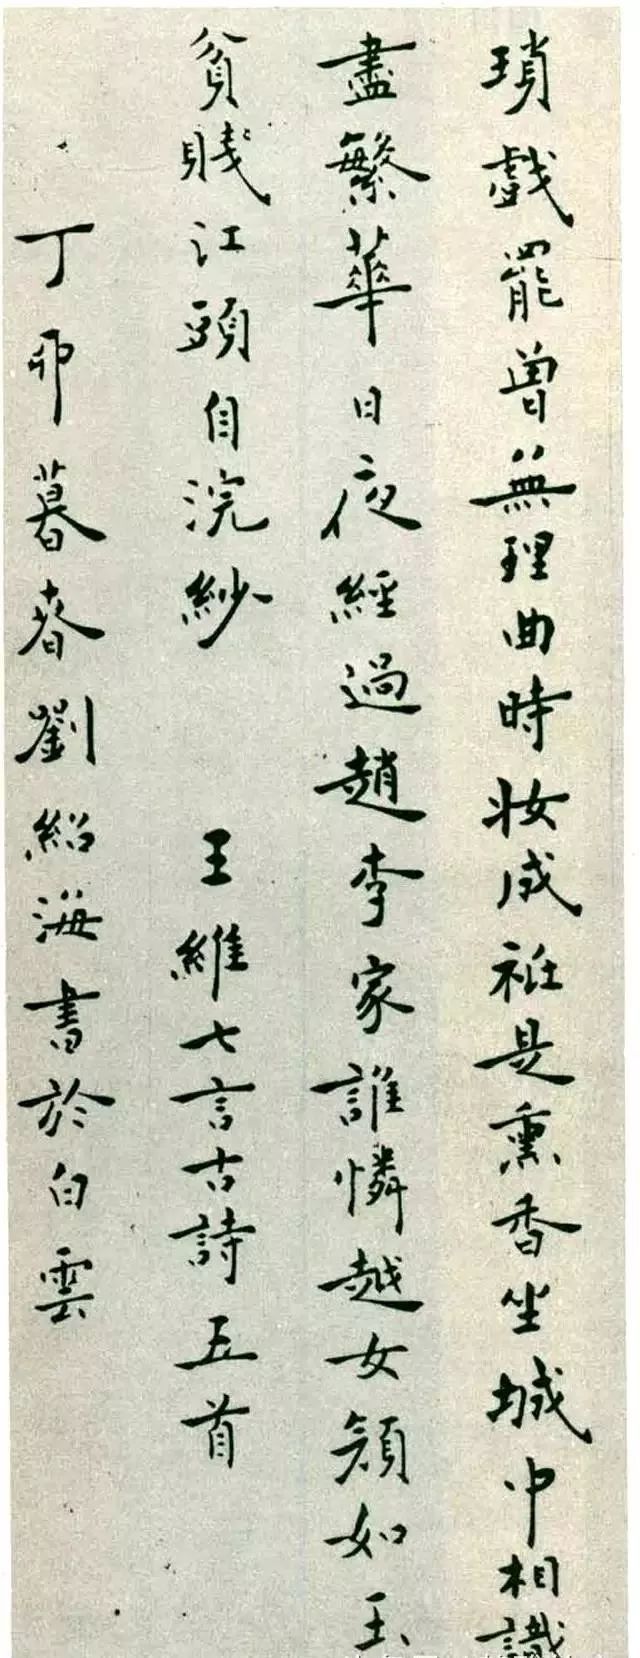 瑣戲罷曾無理曲時妝成祗是熏香坐城中相識
盡繁華日夜經過趙李家誰憐越女顏如玉
貧賤江頭自浣紗　王維七言古詩五首
丁卯暮春劉紹海書於白雲